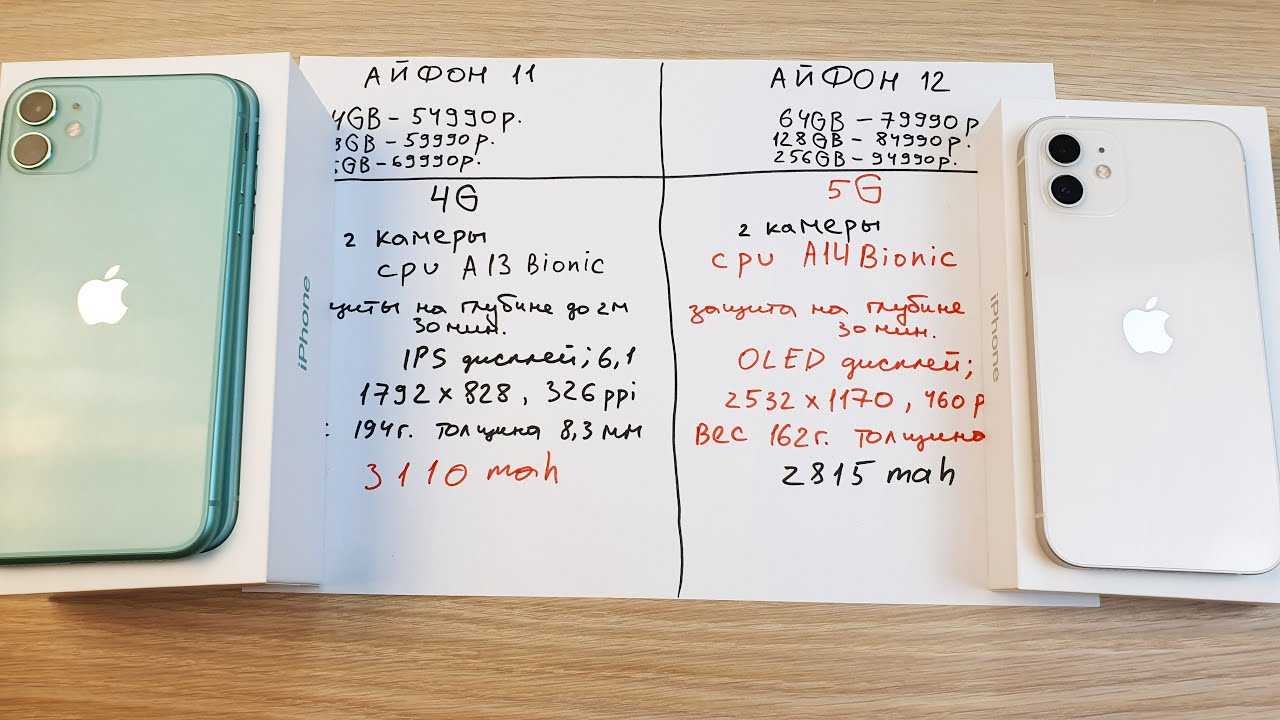 АЙФОН 11
4GB - 54990р.
8GB - 59990р.
6GB - 69990р.
4G
2 камеры
cpu A13 Bionic
щиты на глубине до 2м
30 мин.
IPS дисплей; 6,1
1792 x 828, 326 ppi
: 194г. толщина 8,3 мм
3110 mah
АЙФОН 12
64GB - 79990р
128GB - 84990р.
256GB - 94990р.
5G
2 камеры
cpu A14 Bionic
защита на глубине
30 мин.
OLED дисплей;
2532 x 1170, 460 p
Вес 162г. толщина
2815 mah
iPhone
iPhone